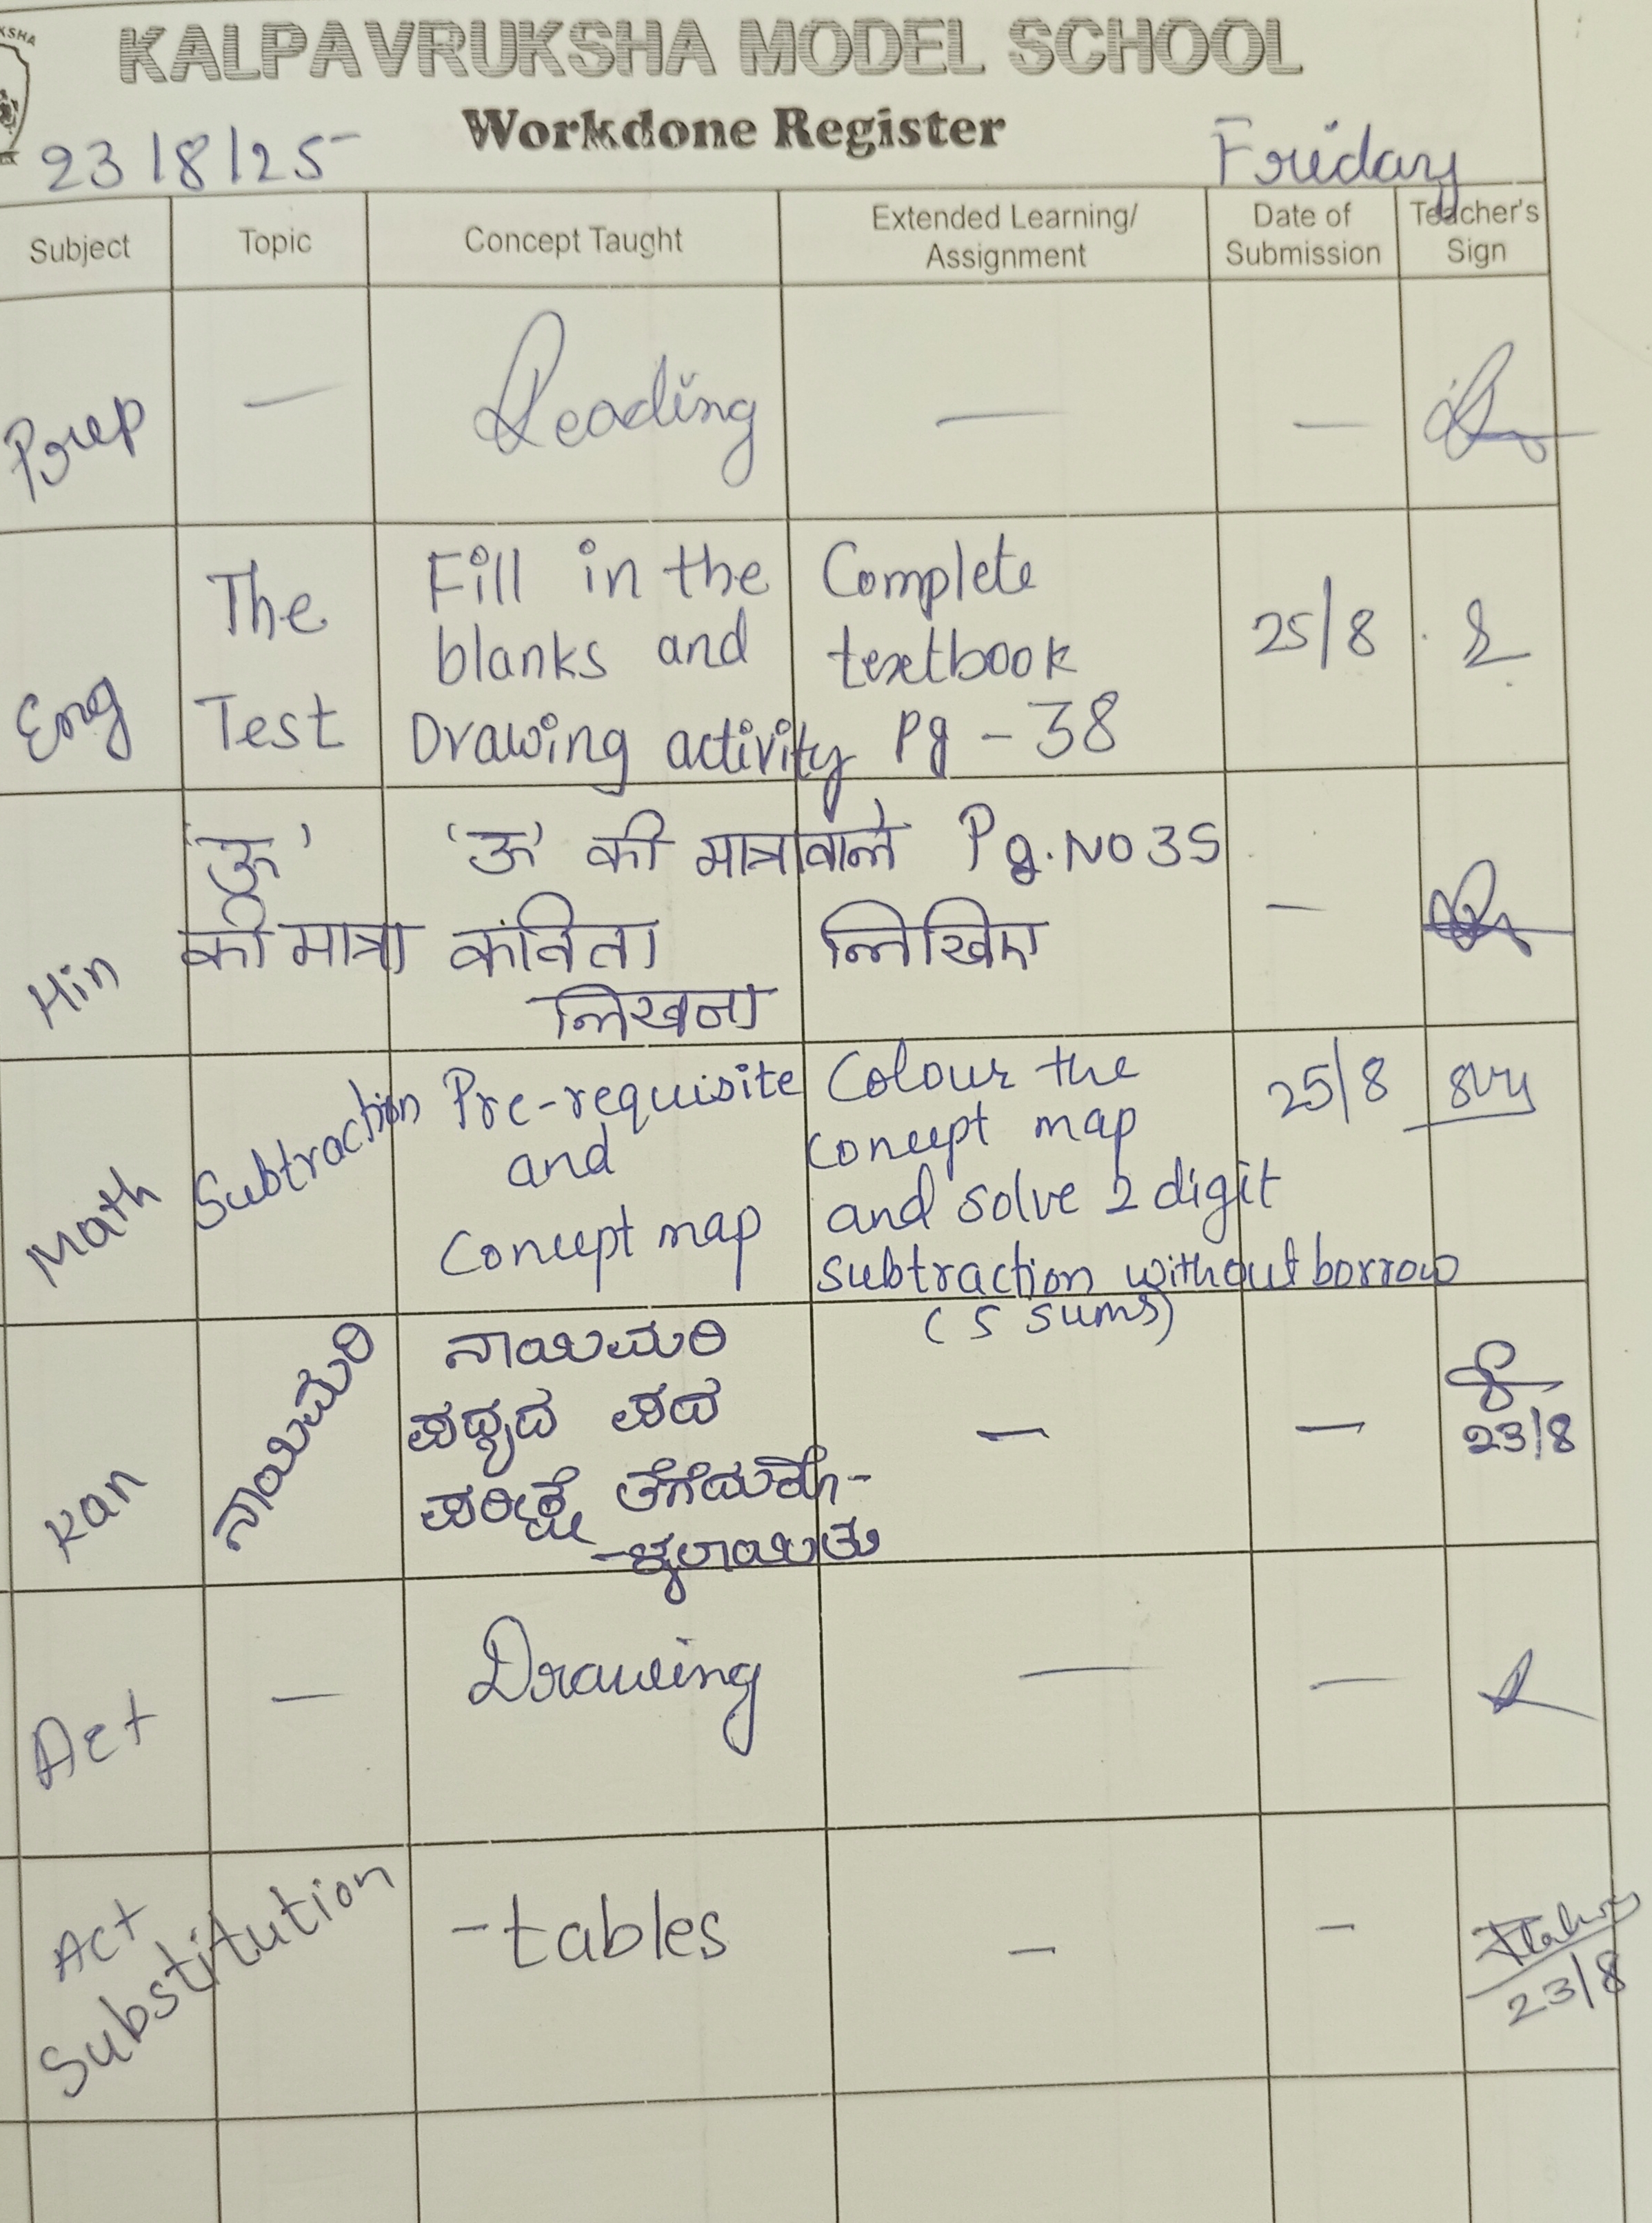 KALPAVRUKSHA MODEL SCHOOL
Workdone Register
23/8/25
Friday
Subject
Topic
Concept Taught
Extended Learning/
Assignment
Date of
Submission
Teacher's
Sign
Prep
—
Reading
—
—
Eng
The
Test
Fill in the
blanks and
Drawing activity
Complete
textbook
Pg - 38
25/8
Hin
'ऊ'
की मात्रा
'ऊ' की मात्रावाले
कविता
लिखना
Pg.No 35
लिखिए
—
Math
Subtraction
Pre-requisite
and
Concept map
Colour the
concept map
and solve 2 digit
subtraction without borrow
(5 sums)
25/8
Kan
ನಾಯಿಮರಿ
ನಾಯಿಮರಿ
ಪದ್ಯದ ಪದ
ಪರೀಕ್ಷೆ ತೆಗೆದುಕೊ-
-ಳ್ಳಲಾಯಿತು
—
—
23/8
Act
—
Drawing
—
—
Act
Substitution
-tables
—
—
23/8